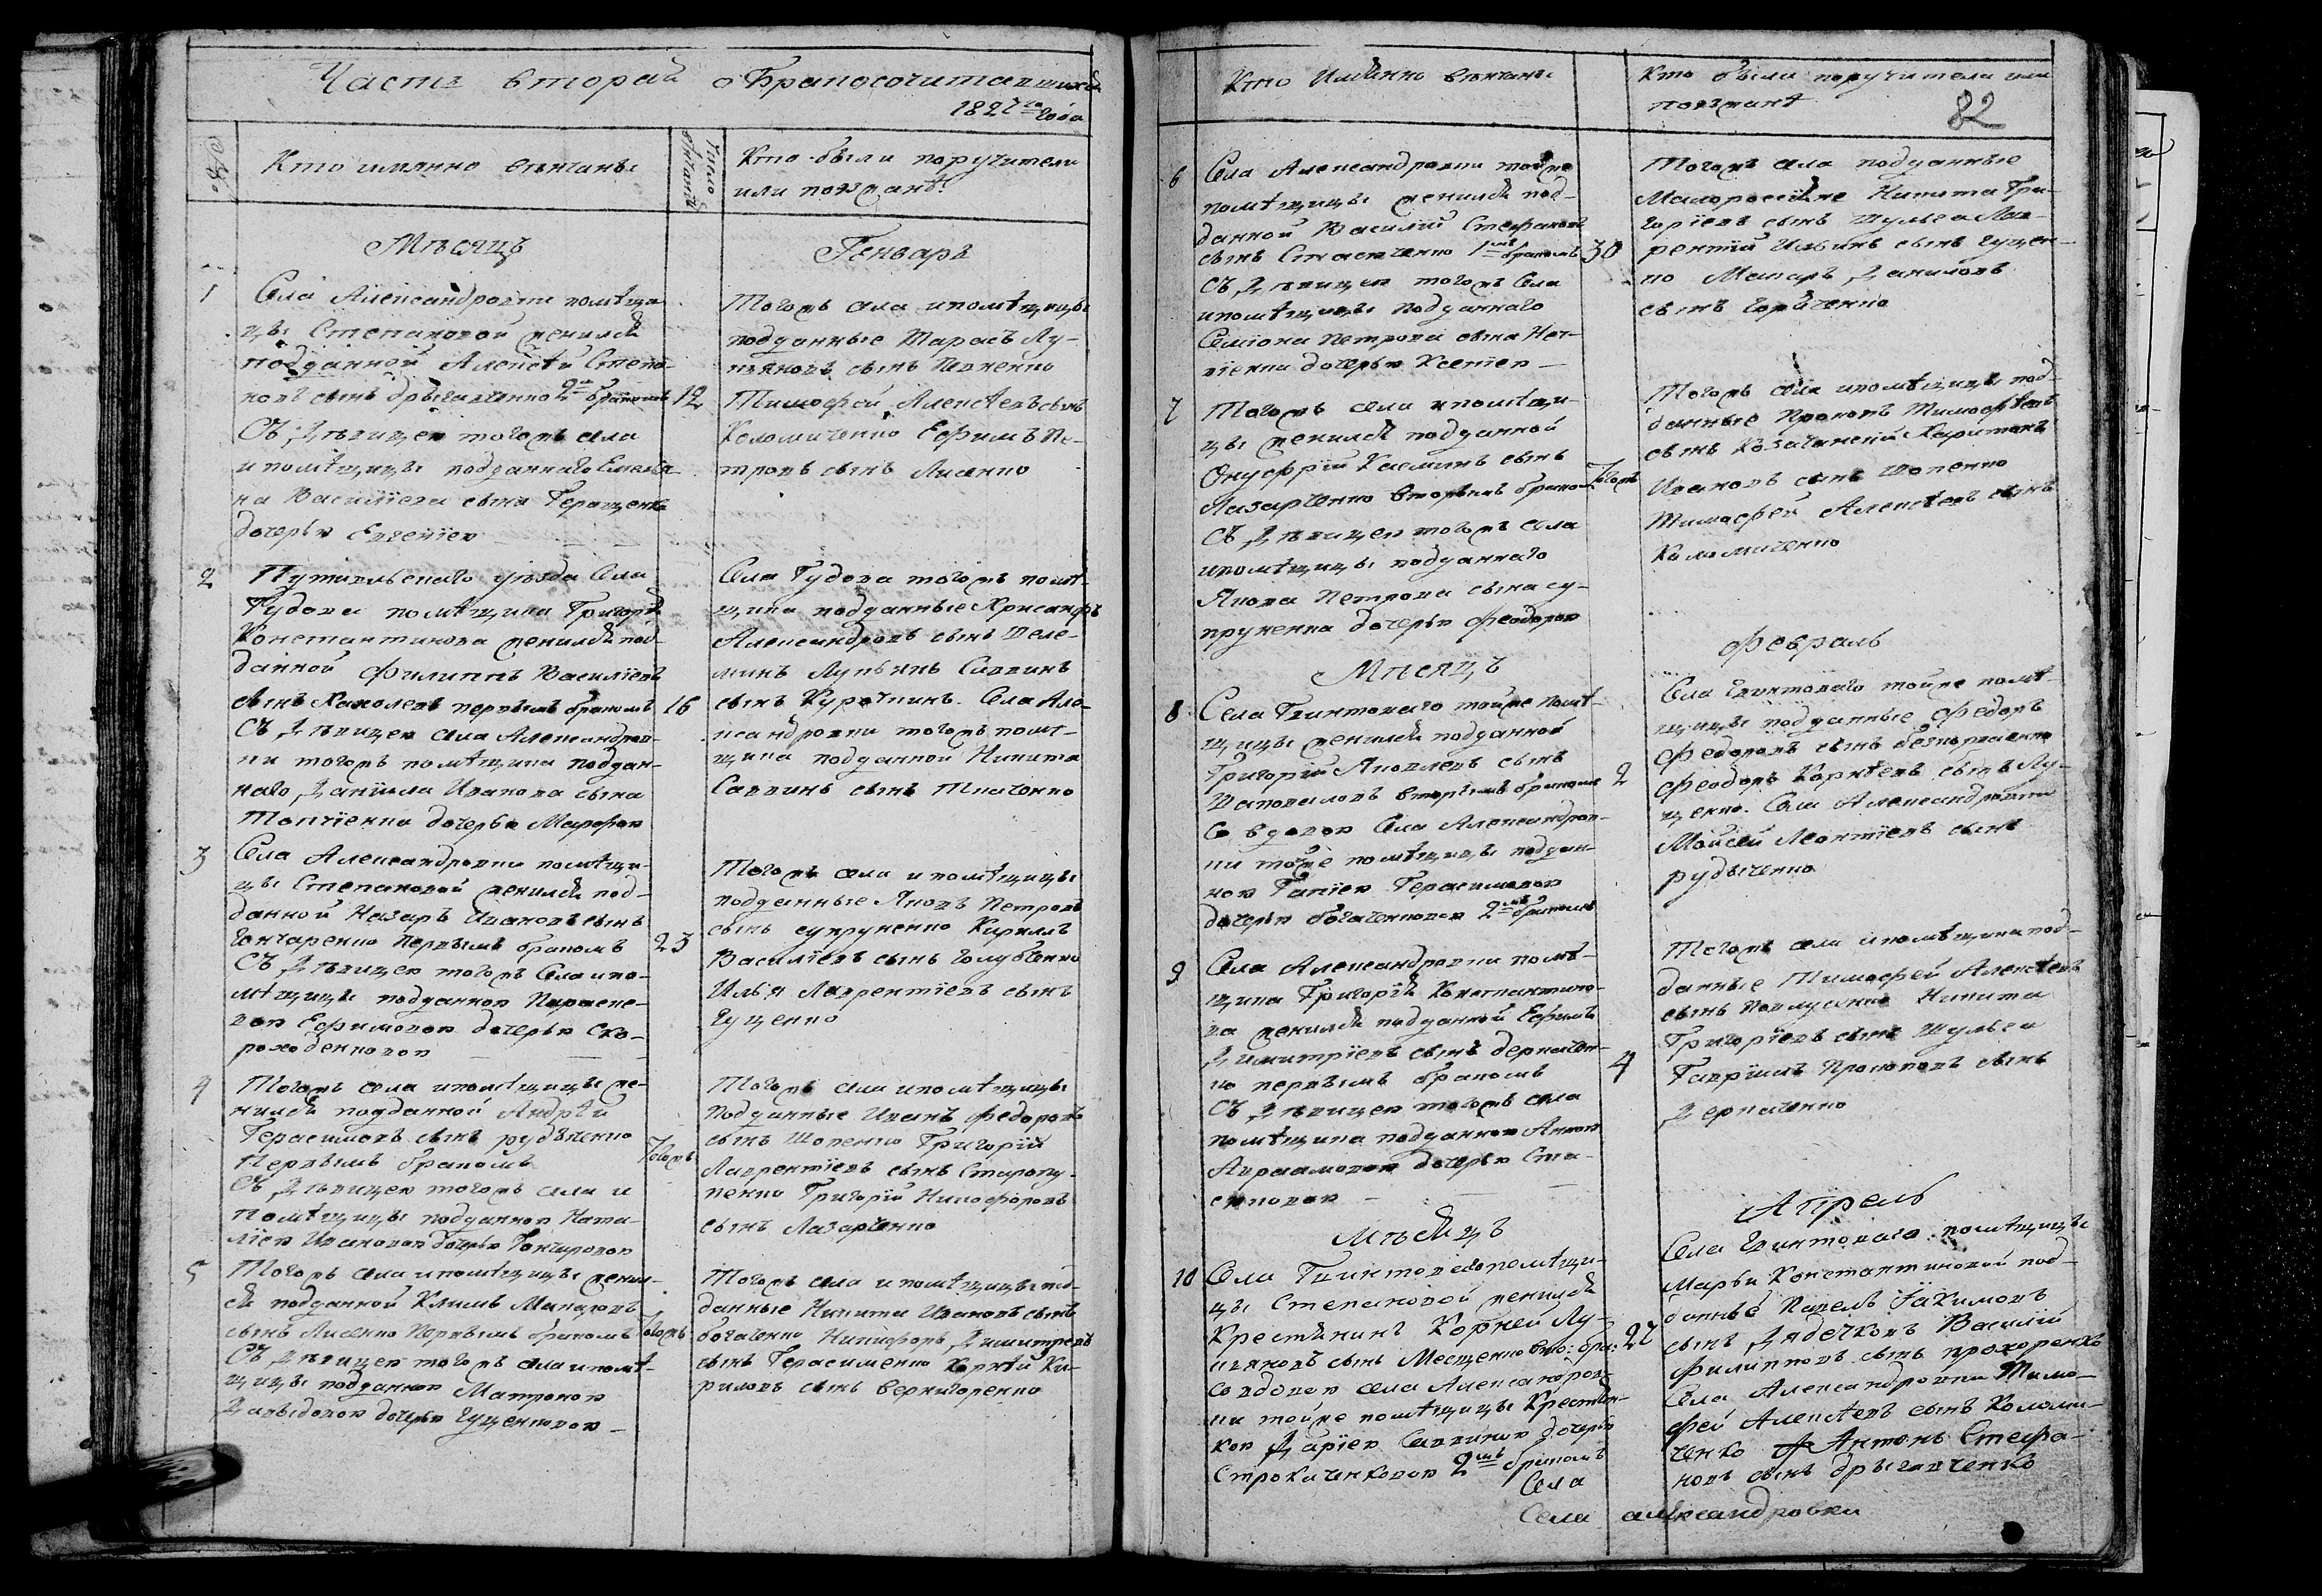 Часть вторая о Бракосочитавшихся
1827го года
№
Кто имянно венчаны
Число венчанія
Кто были поручители
или поезжанѣ
Мѣсяцъ
Генварь
1
Села Александровки помѣщи-
цы Степановой
подданной Алексѣй Степа-
новъ сынъ 2м бракомъ
Съ Дѣвицею тогожъ села
и помѣщицы подданнаго Емелья-
на Василіева сына Геращенка
дочерью Евгеніею
12
Тогожъ села и помѣщицы
подданные Тарасъ Лу-
кьяновъ сынъ
Тимофей Алексѣевъ сынъ
Коломиченко Ефимъ Пе-
тровъ сынъ Лисенко
2
Путивльского уѣзда Села
Гудова помѣщика Григорія
Константинова под-
данной Филиппъ Василіевъ
сынъ первымъ бракомъ
Съ Дѣвицею села Александров-
ки тогожъ помѣщика поддан-
наго Даніила Иванова сына
дочерью Марфою
16
Села Гудова тогожъ помѣ-
щика подданные Хрисанфъ
Александровъ сынъ Шеле-
минъ Лукьянъ Саввинъ
сынъ Курочкинъ. Села Але-
ксандровки тогожъ помѣ-
щика подданной Никита
Саввинъ сынъ Ткаченко
3
Села Александровки помѣщи-
цы Степановой под-
данной Назаръ Ивановъ сынъ
гончаренко первымъ бракомъ
Съ Дѣвицею тогожъ Села и по-
мѣщицы подданною Параске-
вою Ефимовою дочерью Ско-
роходенковою
23
Тогожъ села и помѣщицы
подданные Яковъ Петровъ
сынъ супруненко Кирилъ
Василіевъ сынъ голубченко
Илья Лаврентіевъ сынъ
Гуценко
4
Тогожъ села и помѣщицы
подданной Андрей
Герасимовъ сынъ рудченко
Первымъ бракомъ
Съ Дѣвицею тогожъ села и
помѣщицы подданною Ната-
ліею Ивановою дочерью Гончаровою
Тогожъ
Тогожъ села и помѣщицы
Подданные Иванъ Федоровъ
сынъ Шопенко Григорій
Лаврентіевъ сынъ
Григорій Никифоровъ
сынъ Лазарченко
5
Тогожъ села и помѣщицы
подданной Климъ Макаровъ
сынъ Лисенко Первымъ бракомъ
Съ Дѣвицею тогожъ села и помѣ-
щицы подданною Матроною
Давыдовою дочерью Гуценковою
Тогожъ
Тогожъ села и помѣщицы по-
данные Никита Ивановъ сынъ
богаченко Никифоръ Димитревъ
сынъ Герасименко Корнѣй Ки-
риловъ сынъ вернигоренко
Кто Имянно венчаны
Кто были поручители или
поезжанѣ
82
6
Села Александровки тойже
помѣщицы под-
данной Василій Стефановъ
сынъ 1мъ бракомъ
Съ Дѣвицею тогожъ Села
и помѣщицы подданнаго
Семіона Петрова сына
дочерью Ксеніею
30
Тогожъ села подданные
Малороссійяне Никита Гри-
горіевъ сынъ Шульга Лав-
рентій Ильинъ сынъ Гуцен-
ко Макаръ Даниловъ
сынъ
7
Тогожъ села и помѣщи-
цы подданной
Онуфрій Касминъ сынъ
Лазарченко вторымъ бракомъ
Съ Дѣвицею тогожъ села
и помѣщицы подданнаго
Якова Петрова сына су-
пруненка дочерью Феодорою
Тогожъ
Тогожъ села и помѣщицы под-
данные Прокопъ Тимофѣевъ
сынъ Козачанскій Харитонъ
Ивановъ сынъ Шопенко
Тимофей Алексѣевъ сынъ
Коломиченко
Мѣсяцъ
Февраль
8
Села Гвинтоваго тойже помѣ-
щицы подданной
Григорій Яковлевъ сынъ
Шаповаловъ вторымъ бракомъ
Со вдовою Села Александров-
ки тойже помѣщицы поддан-
ною Герасимовою
дочерью богаченковою 2мъ бракомъ
2
Села Гвинтоваго тойже помѣ-
щицы подданные Федоръ
Федоровъ сынъ
Феодоръ Корнѣевъ сынъ Лу-
ценко. Села Александровки
Мойсей Леонтіевъ сынъ
рудыченко
9
Села Александровки помѣ-
щика Григорія Константино-
ва подданной Ефимъ
Димитріевъ сынъ деркачен-
ко первымъ бракомъ
Съ Дѣвицею тогожъ села
помѣщика подданною Анною
Авраамовою дочерью
4
Тогожъ села и помѣщика под-
данные Тимофей Алексѣевъ
сынъ Никита
Григоріевъ сынъ Шульга
Гавріилъ Прокоповъ сынъ
Деркаченко
Мѣсяцъ
Апрель
10
Села Гвинтоваго помѣщи-
цы Степановой
Крестянинъ Корней Лу-
кьяновъ сынъ Мосценко вто: бра:
Со вдовою села Александров-
ки тойже помѣщицы Крестян-
кою Даріею Саввиною дочерью
Строкаченковою 2мъ бракомъ
Села
22
Села Гвинтоваго помѣщицы
марьи Константиновой под-
данные Павелъ Іакимовъ
сынъ Дядечковъ Василій
Филипповъ сынъ прохоренко
Села Александровки Тимо-
фей Алексѣевъ сынъ Коломи-
ченко Антонъ Стефа-
новъ сынъ
Села александровки